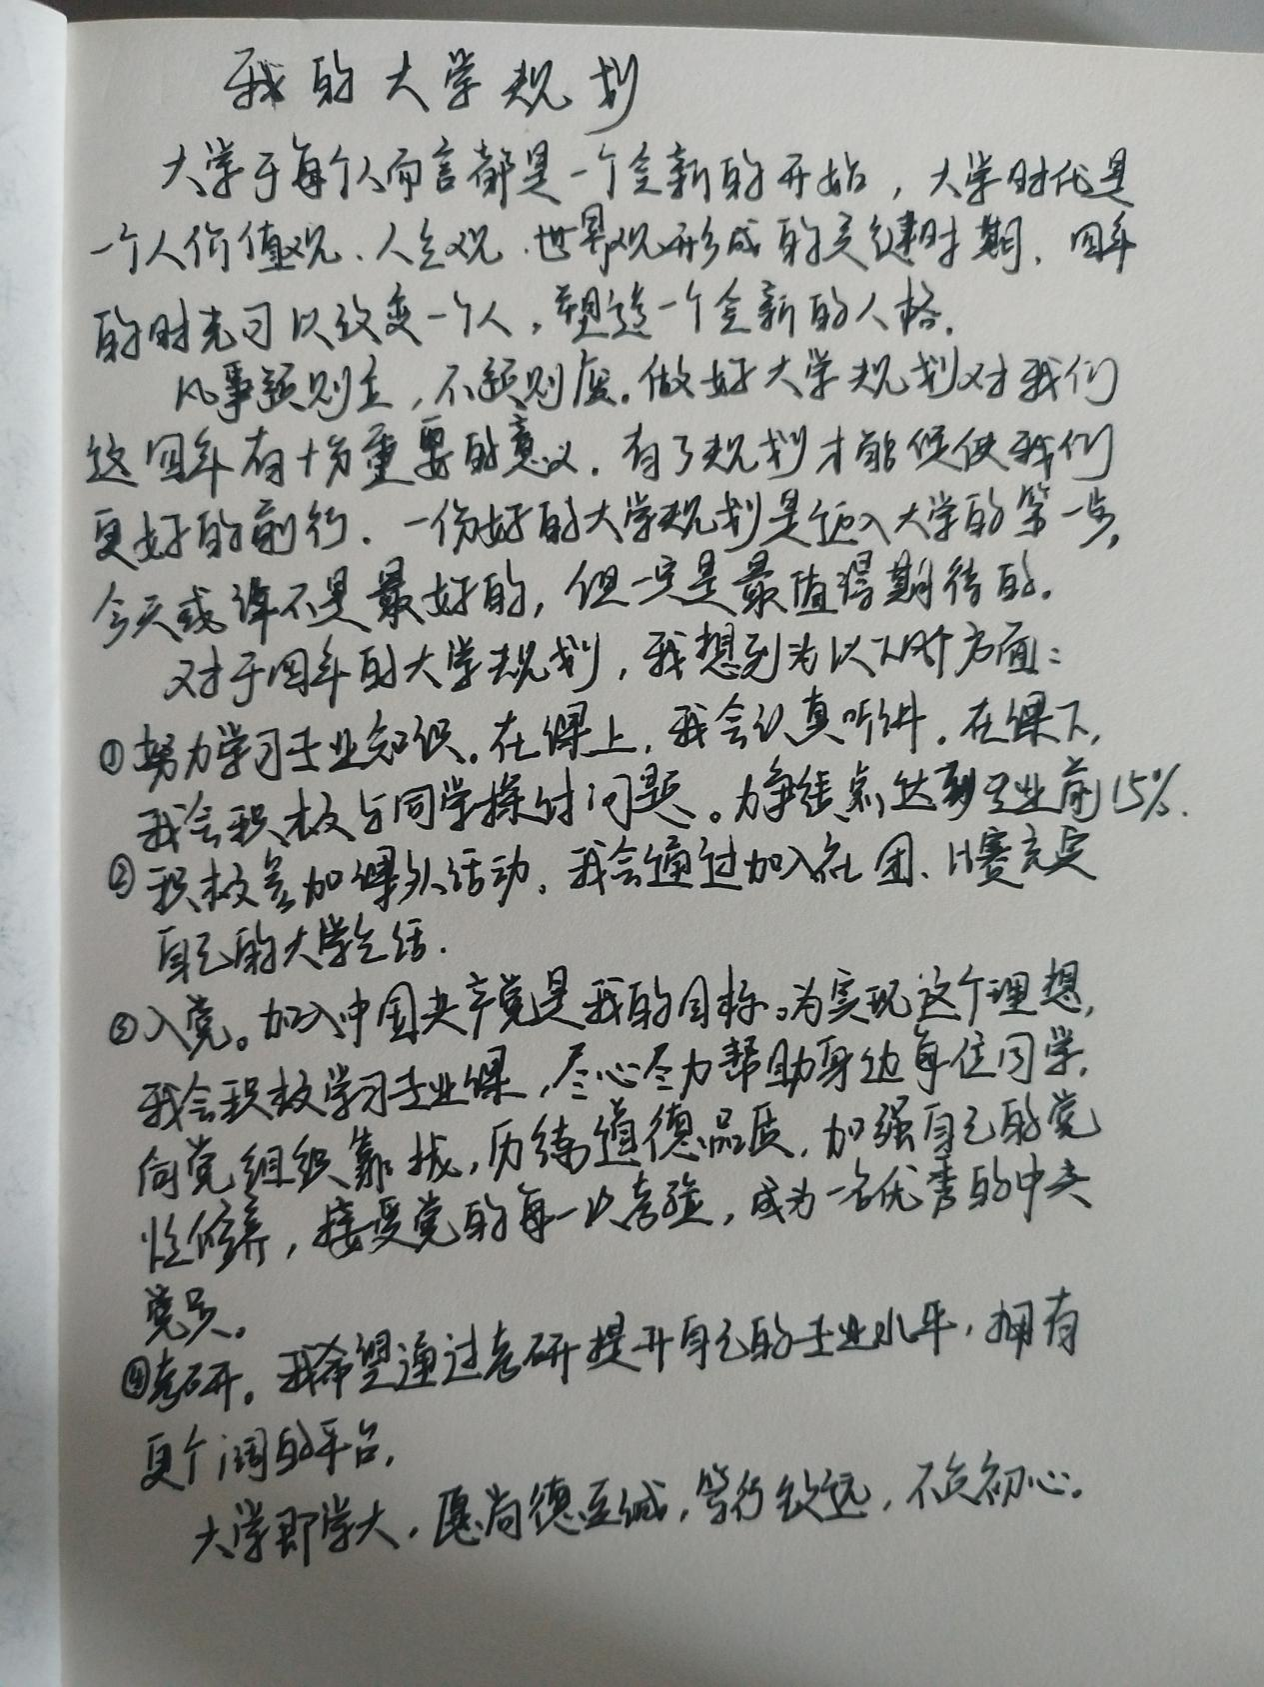 我的大学规划
大学于每个人而言都是一个全新的开始，大学时代是
一个人价值观、人生观、世界观形成的关键时期，四年
的时光可以改变一个人，塑造一个全新的人格。
凡事预则立，不预则废。做好大学规划对我们
这四年有十分重要的意义。有了规划才能促使我们
更好的前行。一份好的大学规划是迈入大学的第一步，
今天或许不是最好的，但一定是最值得期待的。
对于四年的大学规划，我想到为以下四个方面：
①努力学习专业知识。在课上，我会认真听讲。在课下，
我会积极与同学探讨问题。力争绩点达到专业前15%.
②积极参加课外活动。我会通过加入社团、比赛充实
自己的大学生活.
③入党。加入中国共产党是我的目标。为实现这个理想，
我会积极学习专业课，尽心尽力帮助身边每位同学，
向党组织靠拢，历练道德品质，加强自己的党
性修养，接受党的每一次考验，成为一名优秀的中共
党员。
④考研。我希望通过考研提升自己的专业水平，拥有
更广阔的平台。
大学即学大，愿尚德至诚，笃行致远，不负初心。